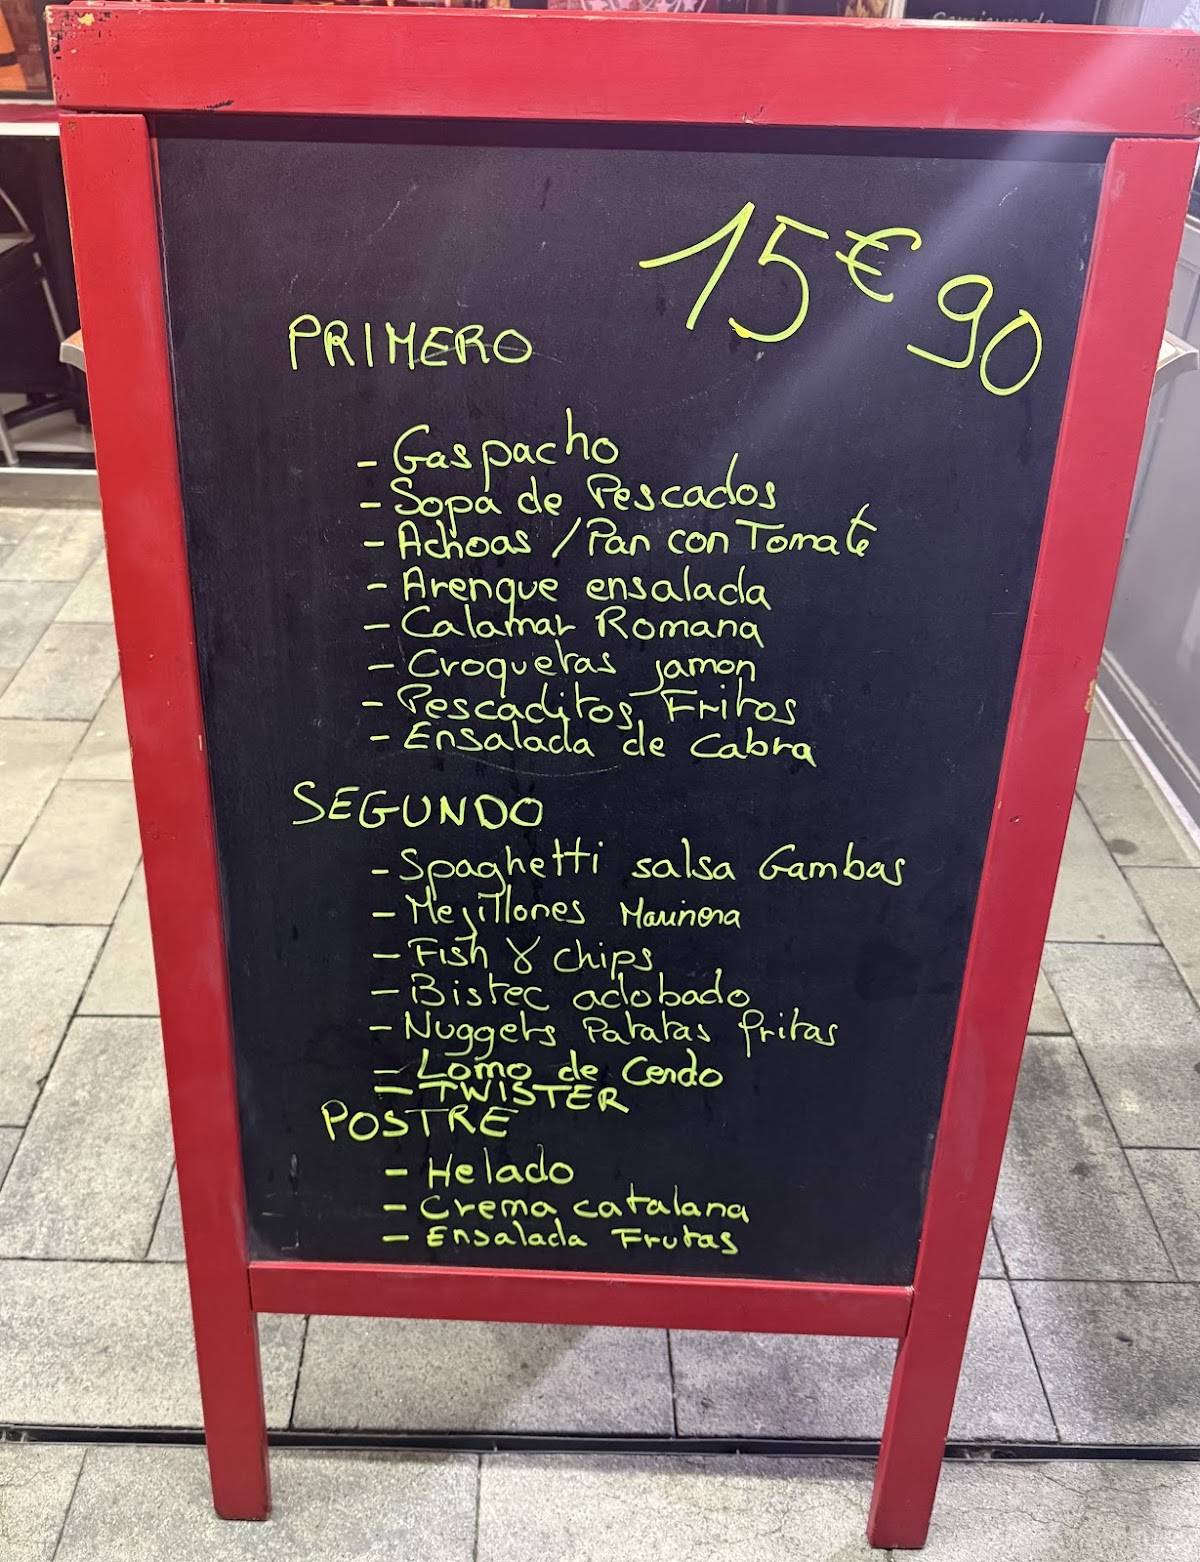 15€90
PRIMERO
- Gaspacho
- Sopa de Pescados
- Achoas / Pan con Tomate
- Arenque ensalada
- Calamar Romana
- Croquetas jamon
- Pescaditos Fritos
- Ensalada de Cabra
SEGUNDO
- Spaghetti salsa Gambas
- Mejillones Marinera
- Fish & chips
- Bistec adobado
- Nuggets Patatas fritas
- Lomo de Cerdo
- TWISTER
POSTRE
- Helado
- Crema catalana
- Ensalada Frutas